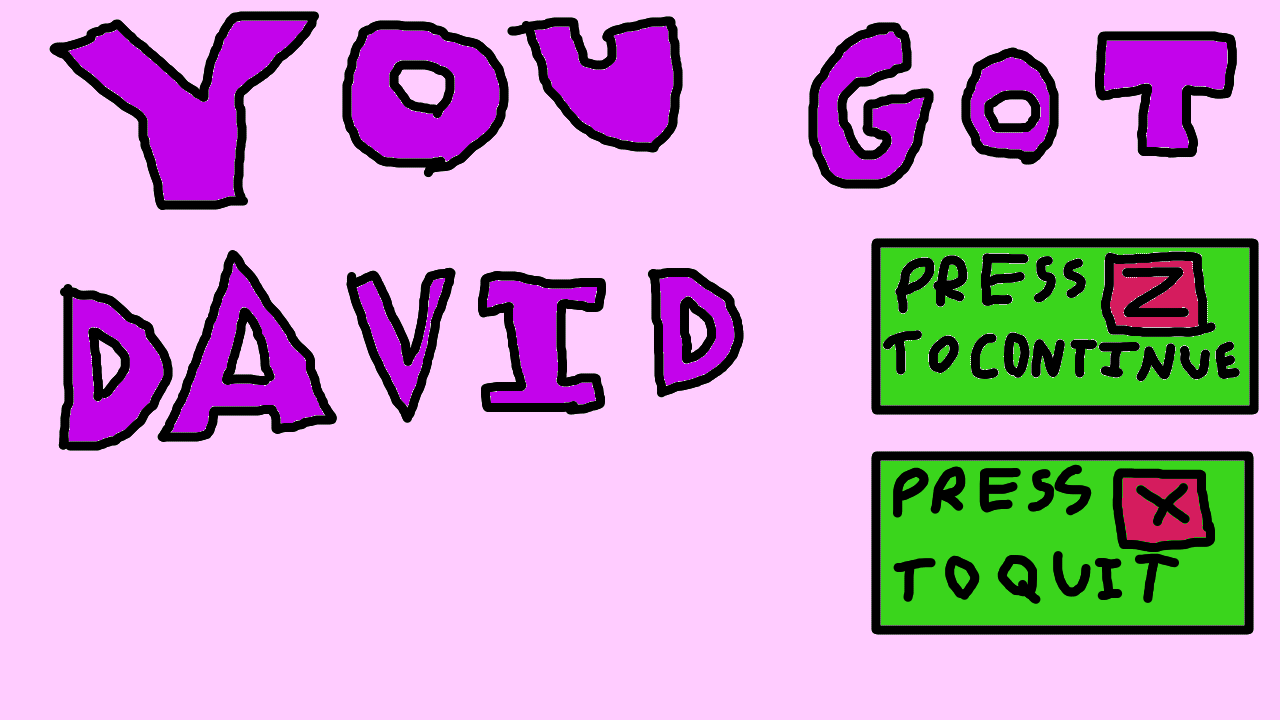 YOU GOT
DAVID
PRESS Z
TO CONTINUE
PRESS X
TO QUIT